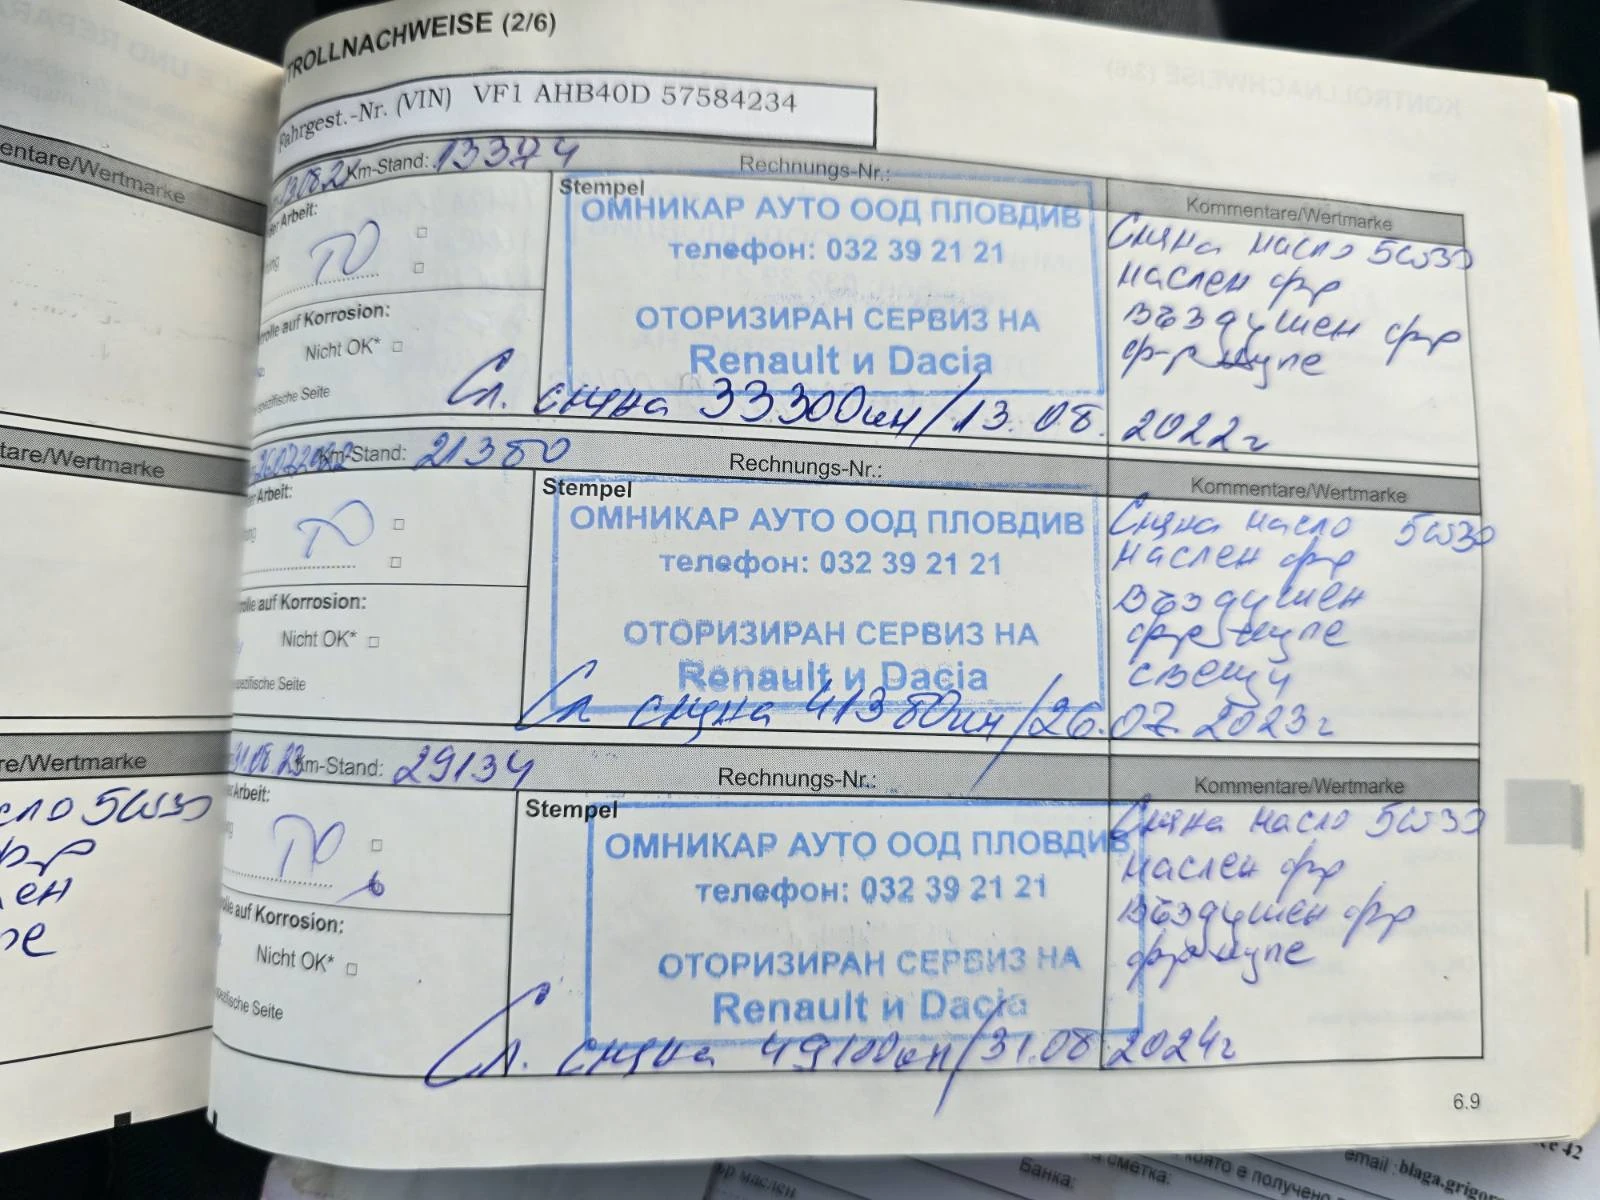 TROLLNACHWEISE (2/6)
Fahrgest.-Nr. (VIN) VF1 AHB40D 57584234
entare/Wertmarke
13.08.21 Km-Stand: 13374 Rechnungs-Nr.:
Kommentare/Wertmarke
der Arbeit:
ТО
Stempel
ОМНИКАР АУТО ООД ПЛОВДИВ
телефон: 032 39 21 21
ОТОРИЗИРАН СЕРВИЗ НА
Renault и Dacia
Смяна масло 5W30
маслен ф-р
въздушен ф-р
ф-р купе
rolle auf Korrosion:
Nicht OK*
spezifische Seite
Сл. смяна 33300км/13.08.2022г
tare/Wertmarke
26072022 Km-Stand: 21380 Rechnungs-Nr.:
Kommentare/Wertmarke
der Arbeit:
ТО
Stempel
ОМНИКАР АУТО ООД ПЛОВДИВ
телефон: 032 39 21 21
ОТОРИЗИРАН СЕРВИЗ НА
Renault и Dacia
Смяна масло 5W30
маслен ф-р
въздушен
ф-р купе
свещи
rolle auf Korrosion:
Nicht OK*
spezifische Seite
Сл смяна 41380км/26.07.2023г
re/Wertmarke
31.08 23 Km-Stand: 29134 Rechnungs-Nr.:
Kommentare/Wertmarke
Arbeit:
ТО
Stempel
ОМНИКАР АУТО ООД ПЛОВДИВ
телефон: 032 39 21 21
ОТОРИЗИРАН СЕРВИЗ НА
Renault и Dacia
Смяна масло 5W30
маслен ф-р
въздушен ф-р
ф-р купе
lle auf Korrosion:
Nicht OK*
ezifische Seite
Сл. смяна 49100км/31.08.2024г
сло 5W30
ф-р
ен
пе
6.9
маслен
Банка:
сметка:
която е получено
email :blaga.grigor